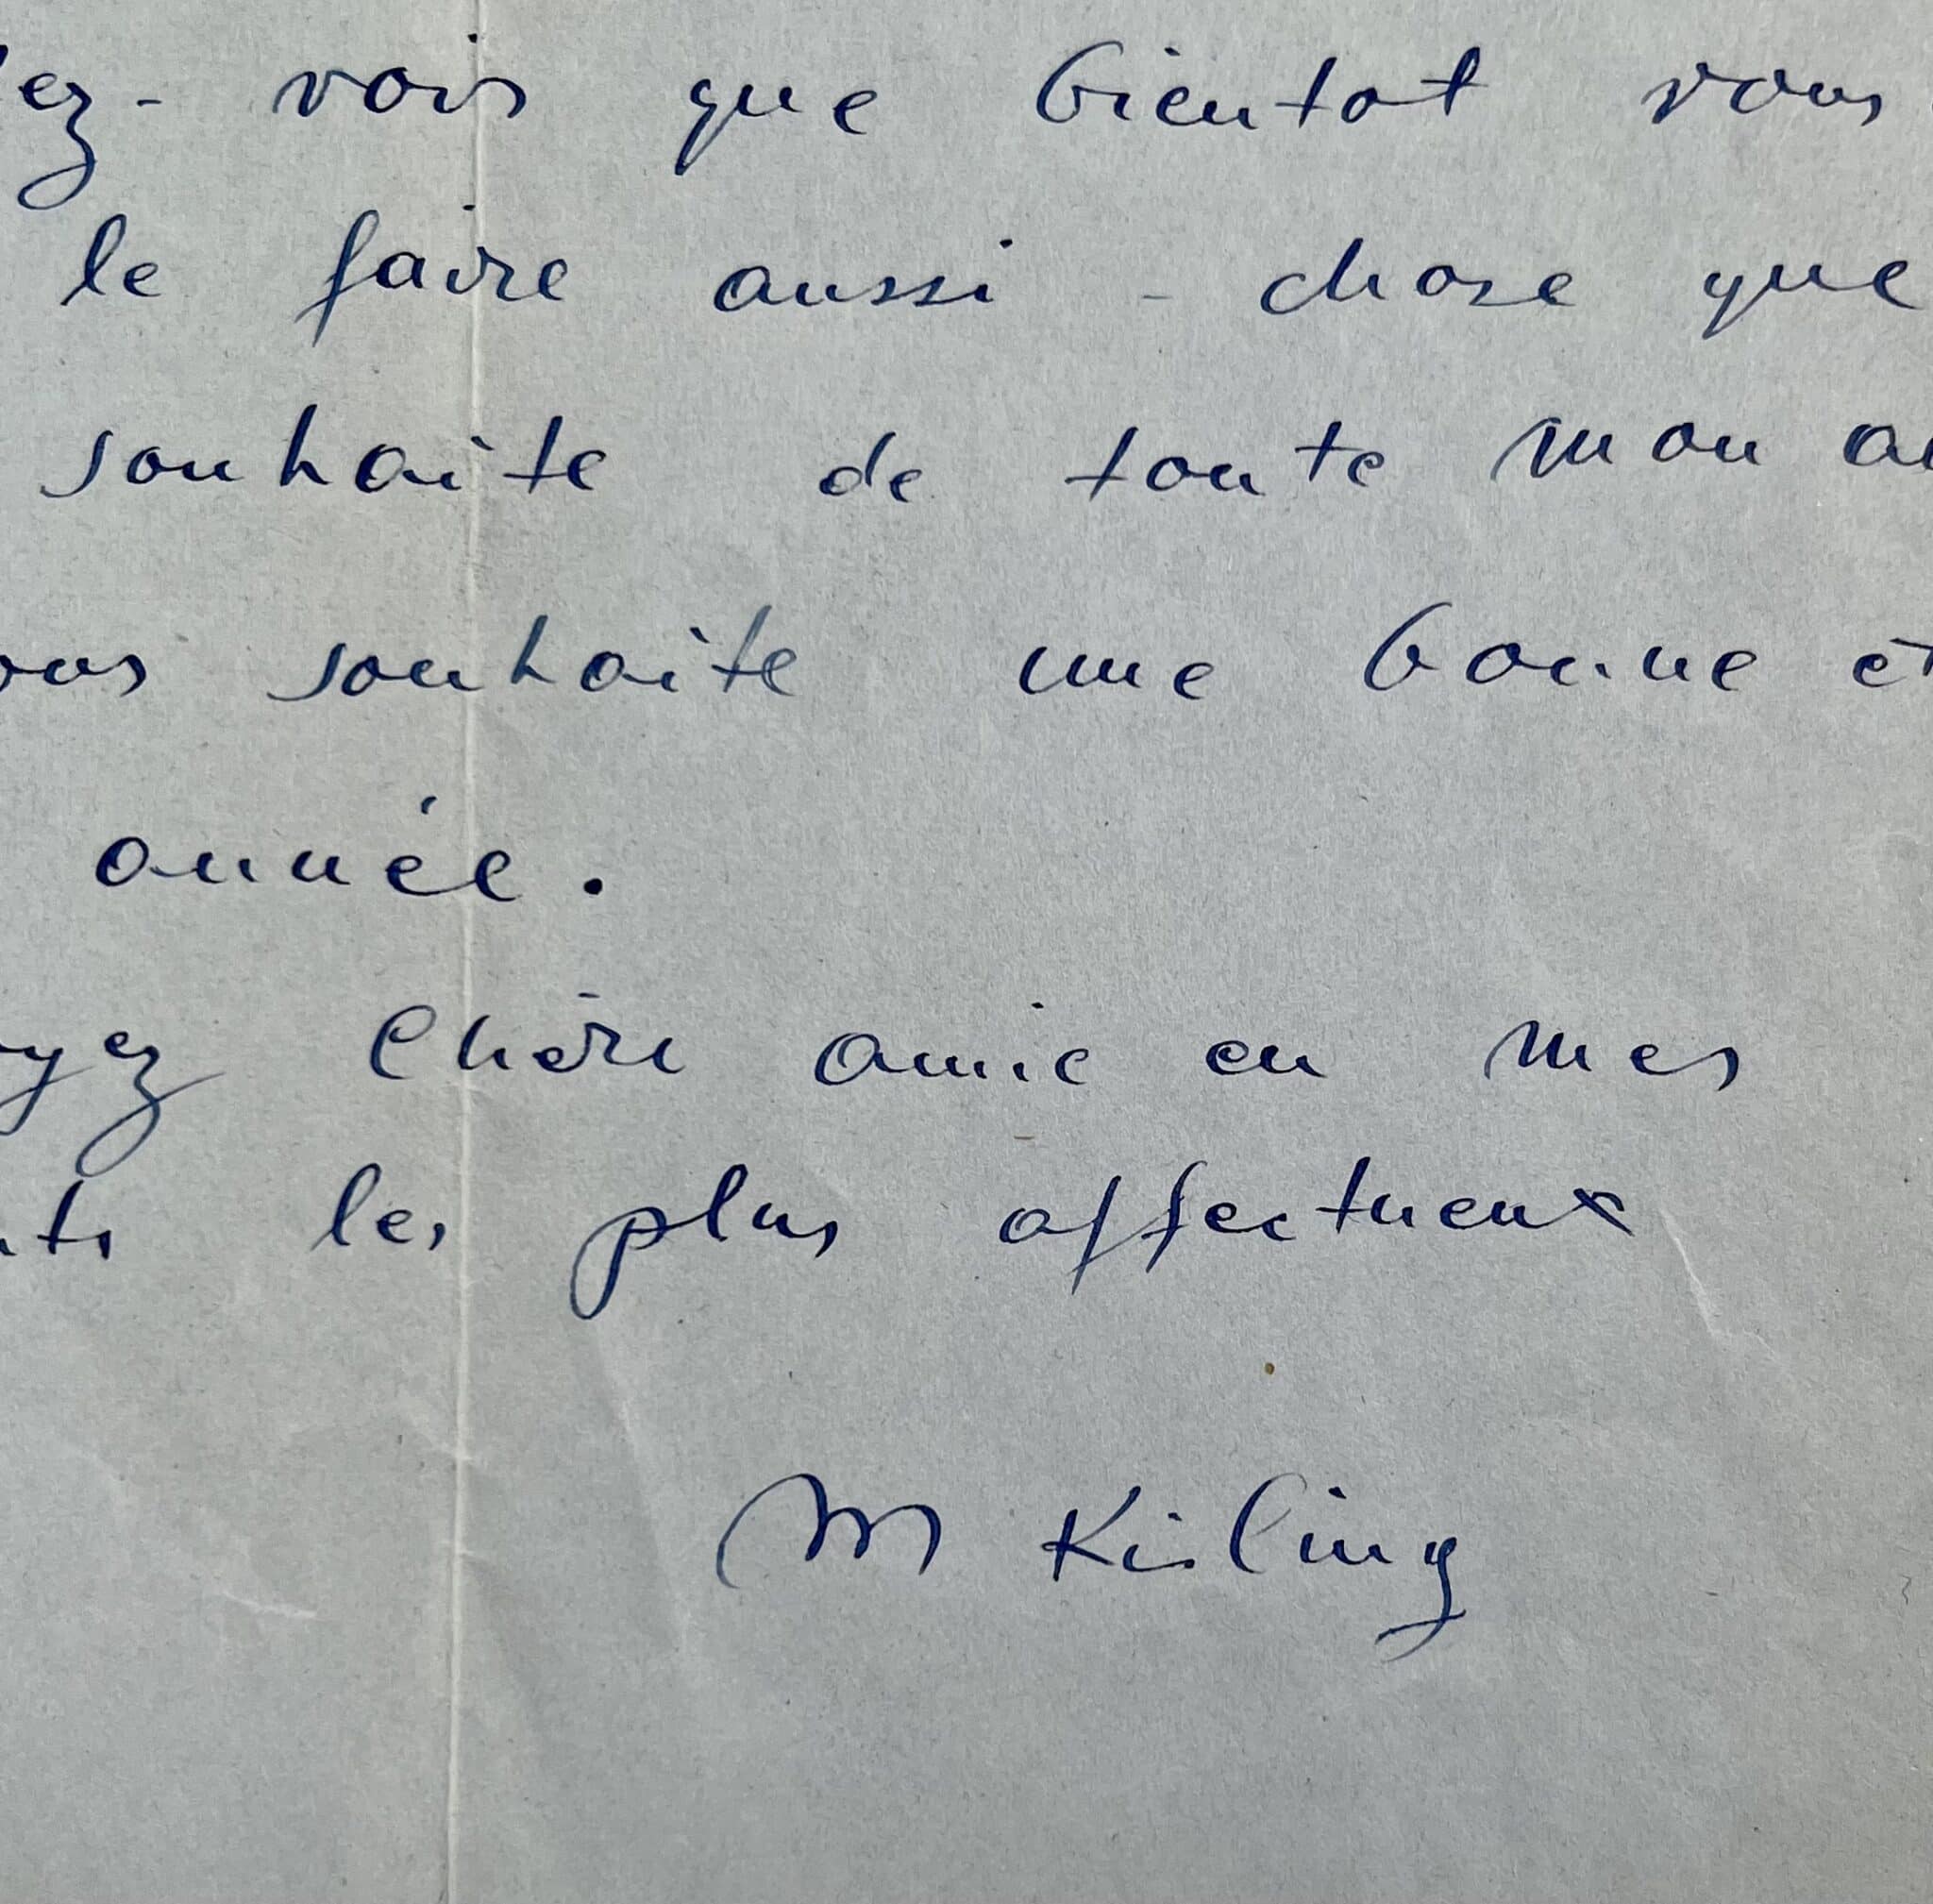 ez - vois que bientot vous
le faire aussi - chose que
souhaite de toute mon
ous souhaite une bonne et
année.
yez Chère amie en mes
nts les plus affectueux
M Kisling